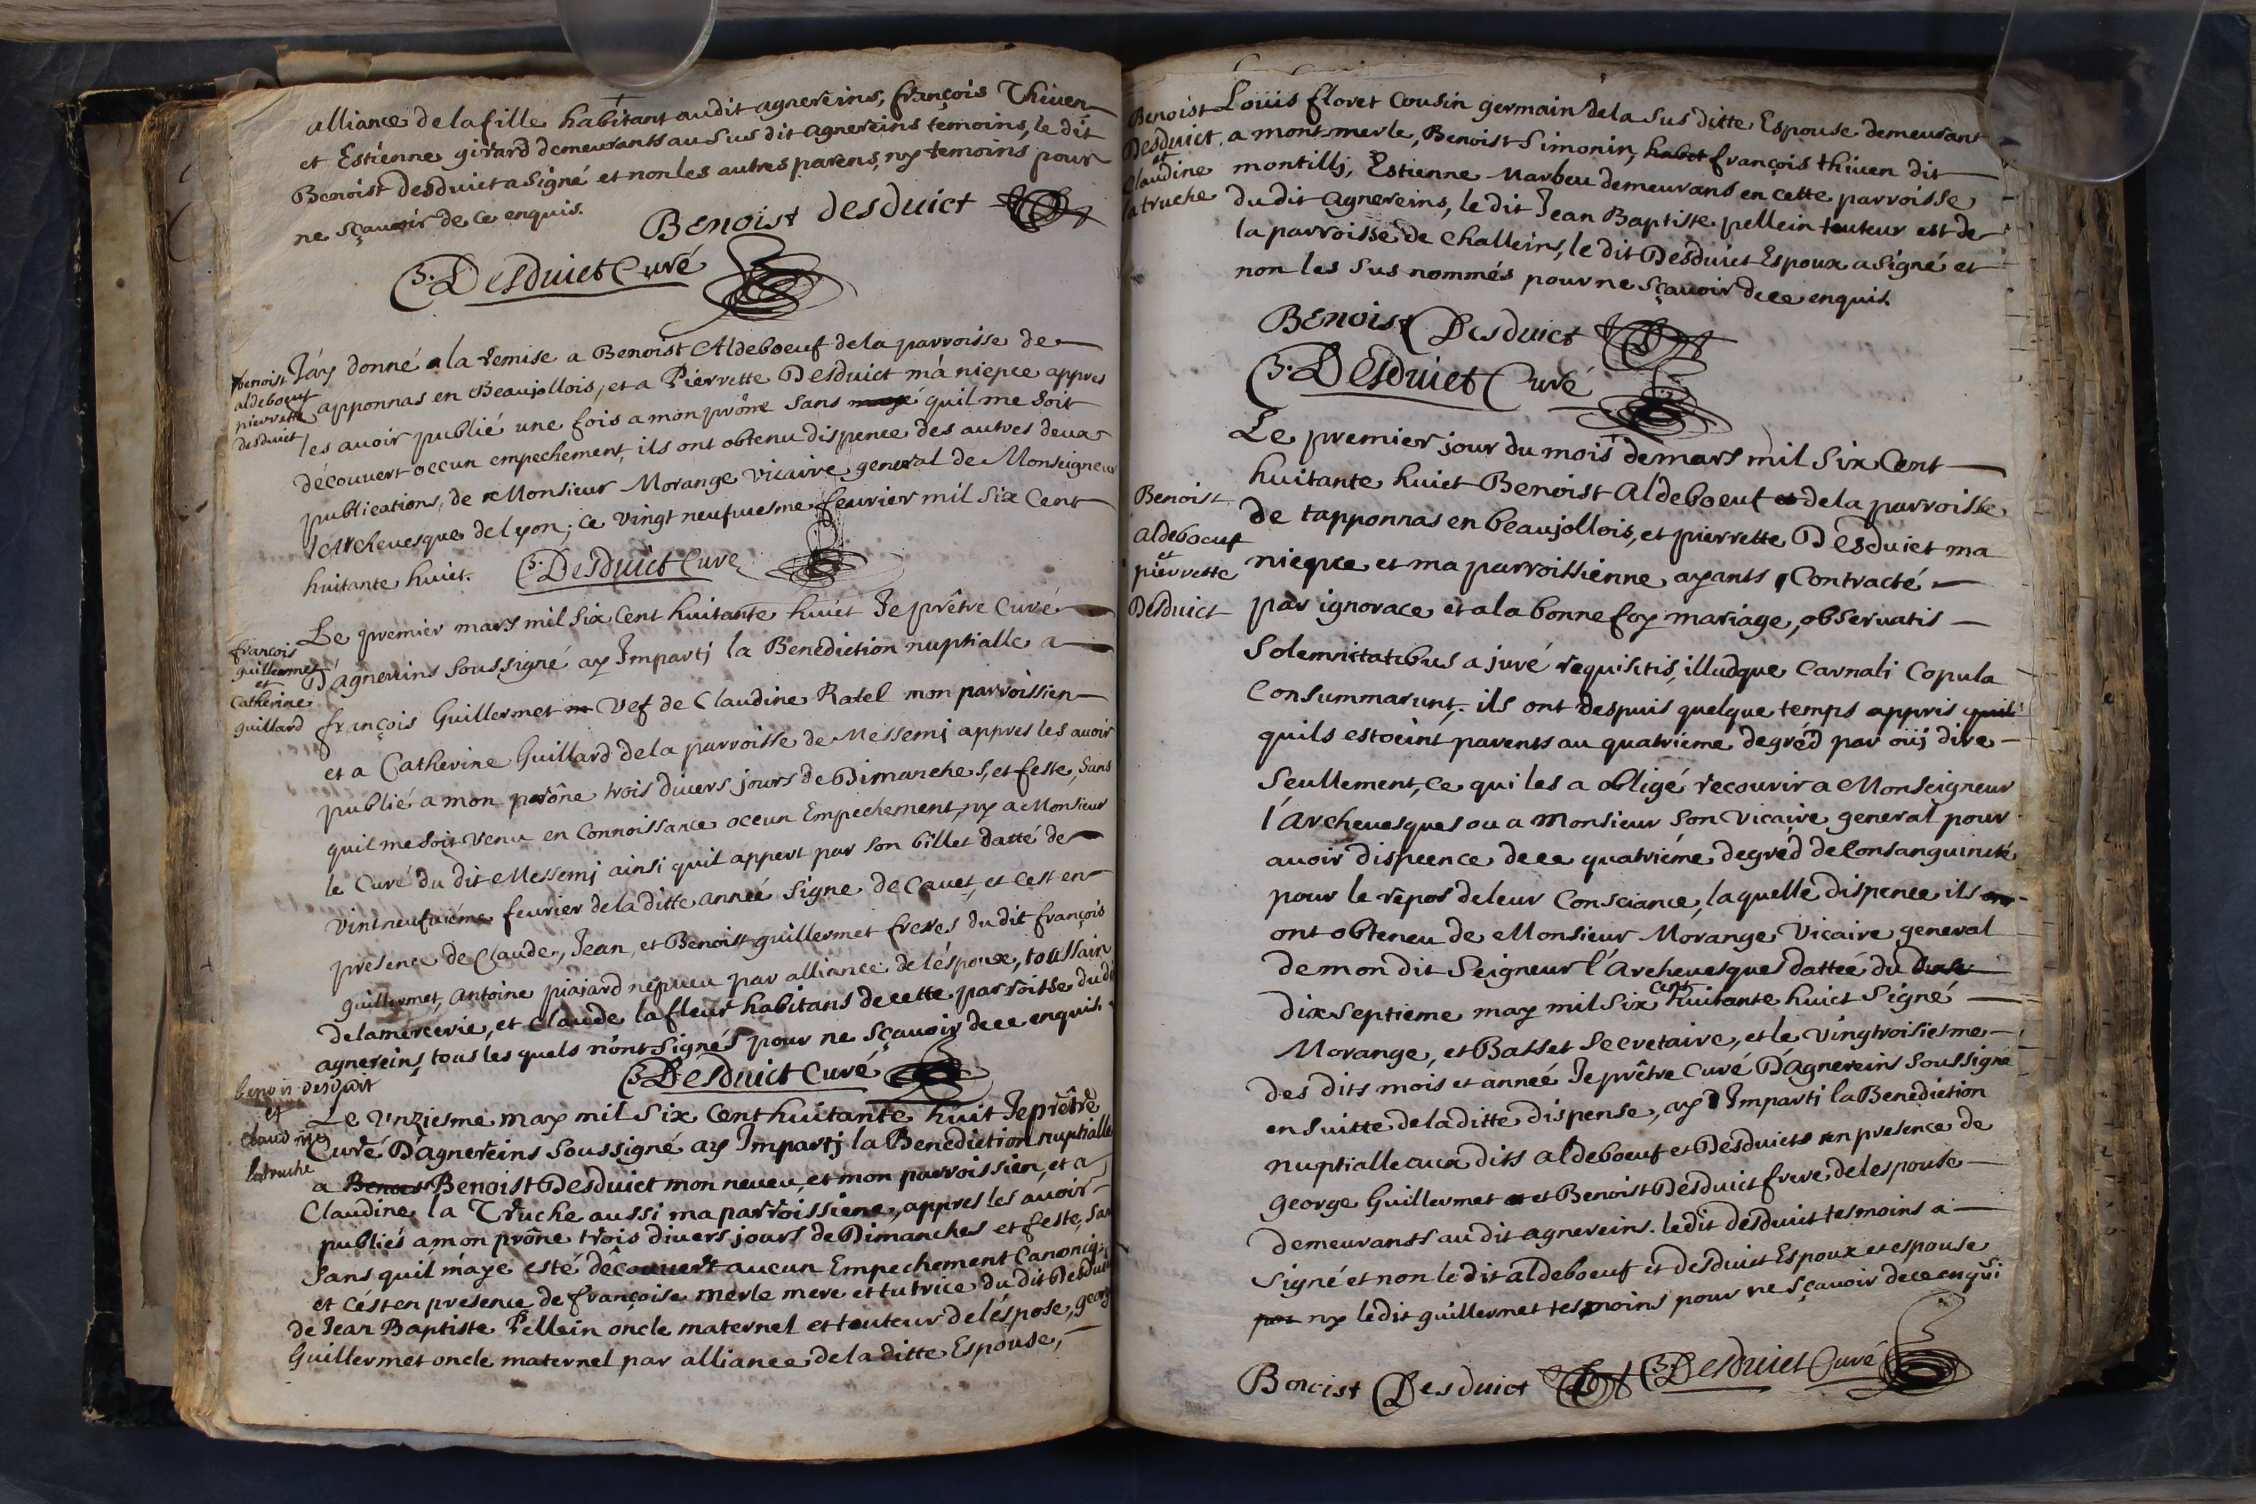 alliance de la fille habitant audit agnereins, françois Thiuen
et Estienne girard demeurants au sus dit agnereins temoins, le dit
Benoist desduict a signé et non les autres parens, ny temoins pour
ne sçauoir de ce enquis.
BENOIST desduict
B. Desduict Curé
benoist
aldeboeuf
pierrette
desduict
J'ay donné la remise a Benoist Aldeboeuf de la parroisse de
apponnas en Beaujollois, et a Pierrette Desduict má niepce appres
les avoir publié une fois a mon prône sans quil me soit
découvert occun empechement, ils ont obtenu dispence des autres deux
publications, de Monsieur Morange Vicaire general de Monseigneur
l'Archeuesque de lyon; ce vingt neufuiesme feurier mil six Cent
huitante huict. B. Desduict Curé
françois
guillermet
et
Catherine
guillard
Le premier mars mil six Cent huitante huict Je prêtre Curé
D'agnereins soussigné ay Impartj la Benediction nuptialle a
françois Guillermet Vef de Claudine Ratel mon parroissien
et a Catherine Guillard de la parroisse de Messemj appres les auoir
publié a mon prône trois diuers jours de Dimanches, et feste, sans
quil me soit venu en Connoissance occun Empechement, ny a Monsieur
le Curé du dit Messemj ainsi quil appert par son billet datté de
vintneufuiéme feurier de la ditte année signe de Cauet, et cest en
presence de Claude, Jean, et Benoist guillermet freres du dit françois
guillermet, Antoine piajard népueu par alliance de léspouse, toussain
de lamercerie, et Claude la fleur habitans de cette parroisse du di
agnereins, tous les quels n'ont signés pour ne sçauoir de ce enquis.
B. Desduict Curé
benoist desduit
et
Claudine
latruche
Le Vnziesme may mil six Cent huitante huit Je prêtre
Curé D'agnereins soussigné ay Impartj la Benediction nuptialle
a Benoist Benoist Desduict mon neueu, et mon parroissien, et a
Claudine la Truche aussi ma parroissiene, appres les auoir
publiés a mon prône trois diuers jours de Dimanches et feste, san
sans quil m'aye esté découuert aucun Empechement Canoniq;
et cést en presence de françoise merle mere et tutrice du dit Desduict
de Jean Baptiste Pellein oncle maternel et teuteur de léspose, georg
Guillermet oncle maternel par alliance de la ditte Espouse,
Benoist
Desduict
et
Claudine
latruche
Loüis floret Cousin germain de la sus ditte Espouse demeurant
a mont merle, Benoist Simonin, habit françois thiuen dit
montillj, Estienne Marbeu demeurans en cette parroisse
du dit Agnereins, le dit Jean Baptiste pellein teuteur est de
la parroisse de Challeins, le dit Desduict Espoux a signé et
non les sus nommés pour ne sçauoir de ce enquis.
BENOIST Desduict
B. Desduict Curé
Benoist
aldeboeuf
et
pierrette
Desduict
Le premier jour du mois de mars mil six Cent
huitante huict Benoist Aldeboeuf de la parroisse
de tapponnas en beaujollois, et pierrette Desduict ma
niepce et ma parroissienne ayants Contracté
par ignorace et a la bonne foy mariage, obseruatis
solemnitatibus a juré requisitis, illudque Carnali Copula
Consummarunt; ils ont despuis quelque temps appris quil
quils estoeint parents au quatrieme degréd par oüj dire
seullement, ce qui les a obligé recourir a Monseigneur
l'Archeuesques ou a Monsieur son vicaire general pour
auoir dispeence de ce quatriéme degréd de Consanguinité
pour le repos de leur Consciance, la quelle dispence ils ont
ont obteneu de Monsieur Morange Vicaire general
de mon dit Seigneur l'Archeuesques dattée du
dix septieme may mil six Cent huitante huict Signé
Morange, et Basset Secretaire, et le vingtroisiesme
des dits mois et année Je prêtre Curé D'Agnereins soussigné
en suitte de la ditte dispense, ay Impartj la Benediction
nuptialle aux dits aldeboeuf et Desduict en presence de
george Guillermet et Benoist Desduict frere de lespouse
demeurants au dit agnereins. le dit desduict tesmoins a
signé et non le dit aldeboeuf et desduict Espoux et espouse
ny le dit guillermet tesmoins pour ne sçauoir de ce enqui
Benoist Desduict B. Desduict Curé